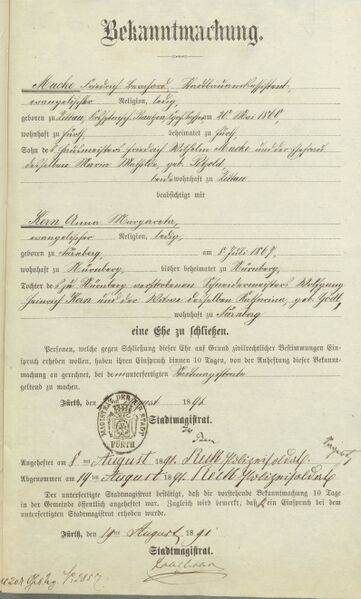 Bekanntmachung.
Mucke Friedrich Bernhard,
evangelischer Religion, ledig,
geboren zu Zittau, 20. Mai
wohnhaft zu Fürth beheimatet zu Fürth,
Sohn des Wilhelm Mucke und der Ehefrau
desselben Maria Mathilde, geb.
beide wohnhaft zu Zittau
beabsichtigt mit
Kern Anna Margareta,
evangelischer Religion, ledig,
geboren zu Nürnberg, am 8 Juli
wohnhaft zu Nürnberg, bisher beheimatet zu Nürnberg,
Tochter des zu Nürnberg verstorbenen Schneidermeisters Wolfgang
Heinrich Kern und der Witwe desselben Katharina, geb.
wohnhaft zu Nürnberg
eine Ehe zu schließen.
Personen, welche gegen Schließung dieser Ehe auf Grund zivilrechtlicher Bestimmungen Ein-
spruch erheben wollen, haben ihren Einspruch binnen 10 Tagen, von der Anheftung dieser Bekannt-
machung an gerechnet, bei dem unterfertigten Standesamte
geltend zu machen.
Fürth, den August 1891
MAGISTRAT DER STADT
FÜRTH
Stadtmagistrat.
Angeheftet 8ten August 1891. Polizeisoldat.
Abgenommen 19ten August 1891 Polizeisoldat.
Der unterfertigte Stadtmagistrat bestätigt, daß die vorstehende Bekanntmachung 10 Tage
in der Gemeinde öffentlich angeheftet war. Zugleich wird bemerkt, daß kein Einspruch bei dem
unterfertigten Stadtmagistrat erhoben wurde.
Fürth, den 19ten August 1891
Stadtmagistrat.